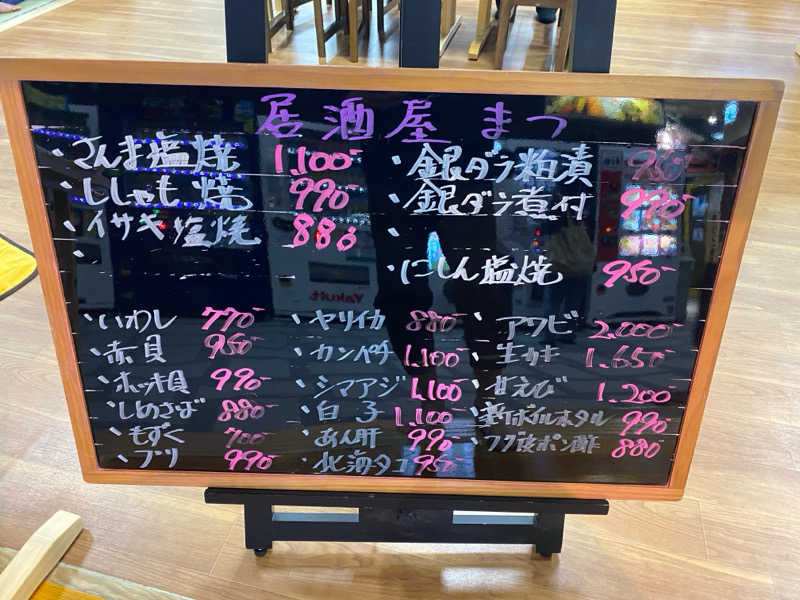 居酒屋 まつ
・さんま塩焼 1,100-
・ししゃも焼 990-
・イサキ塩焼 880
・銀ダラ粕漬 950-
・銀ダラ煮付 990-
・にしん塩焼 950-
・いわし 770-
・赤貝 950-
・ホッキ貝 990-
・しめさば 880-
・もずく 700-
・ブリ 990-
・ヤリイカ 880-
・カンパチ 1,100-
・シマアジ 1,100-
・白子 1,100-
・あん肝 990-
・北海タコ 950-
・アワビ 2,000-
・生カキ 1,650-
・甘えび 1,200-
・ボイルホタル 990-
・フグ皮ポン酢 880-
Yakult